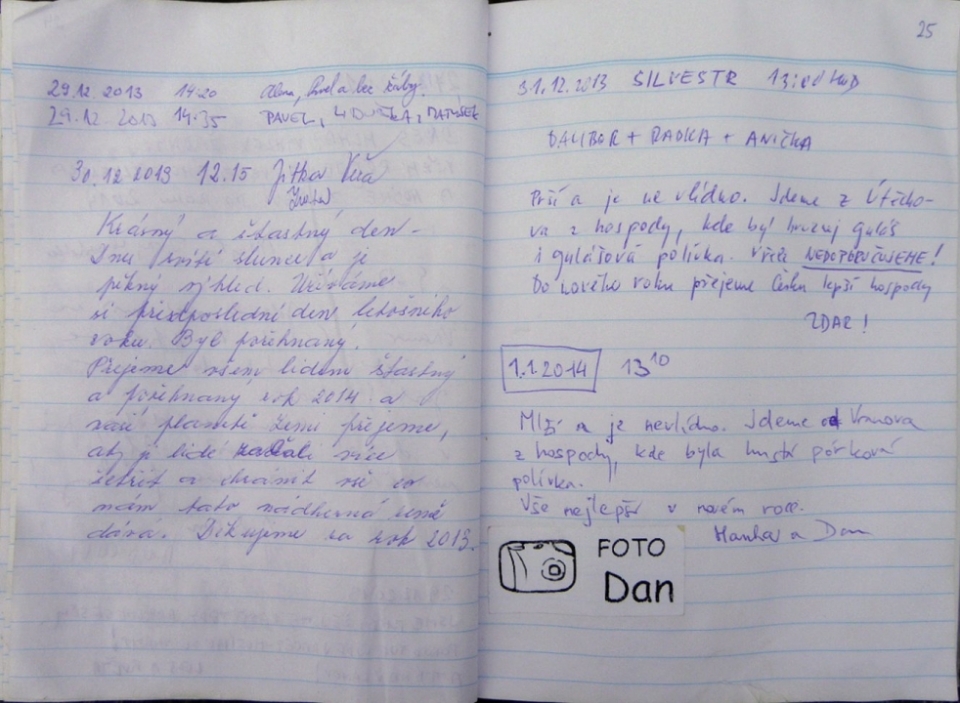 29.12.2013 14:20
29.12.2013 14:35 PAVEL, MATÝSEK
30.12 2013 12.15 Jitka Věra
Krásný a šťastný den -
Dnes svítí slunce a je
pěkný výhled. Užíváme
si předposlední den letošního
roku. Byl požehnaný.
Přejeme všem lidem šťastný
a požehnaný rok 2014 a
naší planetě Zemi přejeme,
aby ji lidé začali více
šetřit a chránit vše co
nám tato nádherná země
dává. Děkujeme za rok 2013.
25
31.12.2013 SILVESTR 13:
DALIBOR + RADKA + ANIČKA
Prší a je ne vlídno. Jdeme z Útěcho-
va z hospody, kde byl hnusný guláš
i gulášová polívka. NEDOPORUČUJEME!
Do nového roku přejeme Česku lepší hospody
ZDAR!
1.1.2014 13 10
Mlží a je nevlídno. Jdeme od Vranova
z hospody, kde byla hustá pórková
polívka.
Vše nejlepší v novém roce.
Hanka a Dan
FOTO
Dan